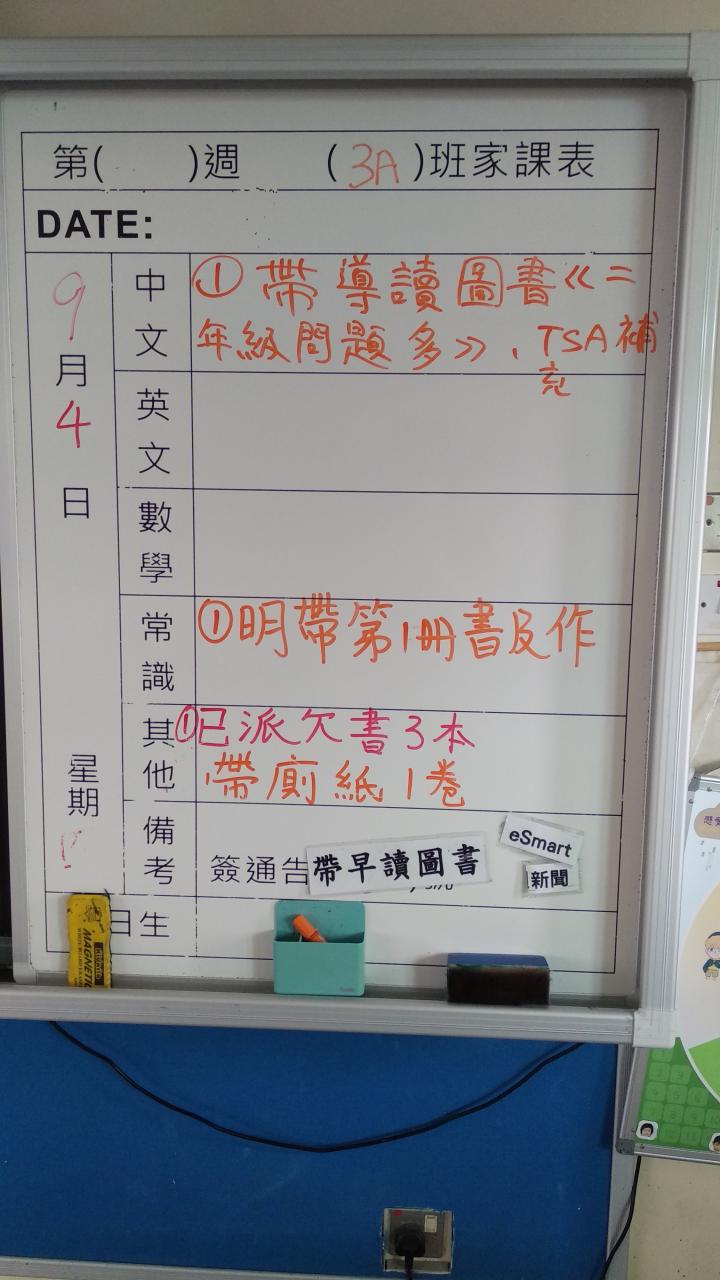 第( )週 (3A)班家課表
DATE:
9月4日 星期
中文 ①帶導讀圖書《二
年級問題多》、TSA補
充
英文
數學
常識 ①明帶第1冊書及作
其他 ①已派欠書3本
帶廁紙1卷
備考 簽通告 帶早讀圖書 eSmart
新聞
日生
MAGNETIC